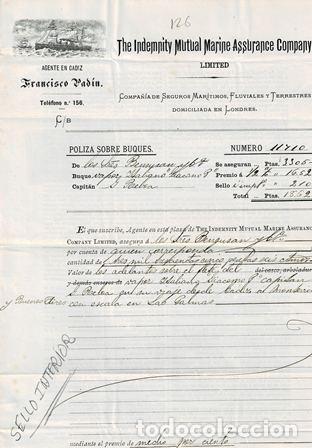 126
The Indemnity Mutual Marine Assurance Company
LIMITED
AGENTE EN CADIZ
Francisco Padín.
Teléfono n.º 156.
COMPAÑÍA DE SEGUROS MARÍTIMOS, FLUVIALES Y TERRESTRES
DOMICILIADA EN LONDRES.
C/B
POLIZA SOBRE BUQUES.
NUMERO 11710
De los Sres
Se aseguran Ptas. 3305
Buque, vapor Italiano
Premio á 1/2 % " 16.52
Capitán
Sello é imp.to " 2.10
TOTAL Ptas. 18.62
El que suscribe, Agente en esta plaza de THE INDEMNITY MUTUAL MARINE ASSURANCE
COMPANY LIMITED, asegura a los Sres
por cuenta de quien corresponda
cantidad de
Valor de los adelantos sobre el flete del del casco, arboladura
y demás enseres de vapor Italiano capitán
en su viaje desde Cadiz a Montevideo
y Buenos Aires
con escala en Las Palmas
SELLO INTERIOR
mediante el premio de medio por ciento
todocoleccion